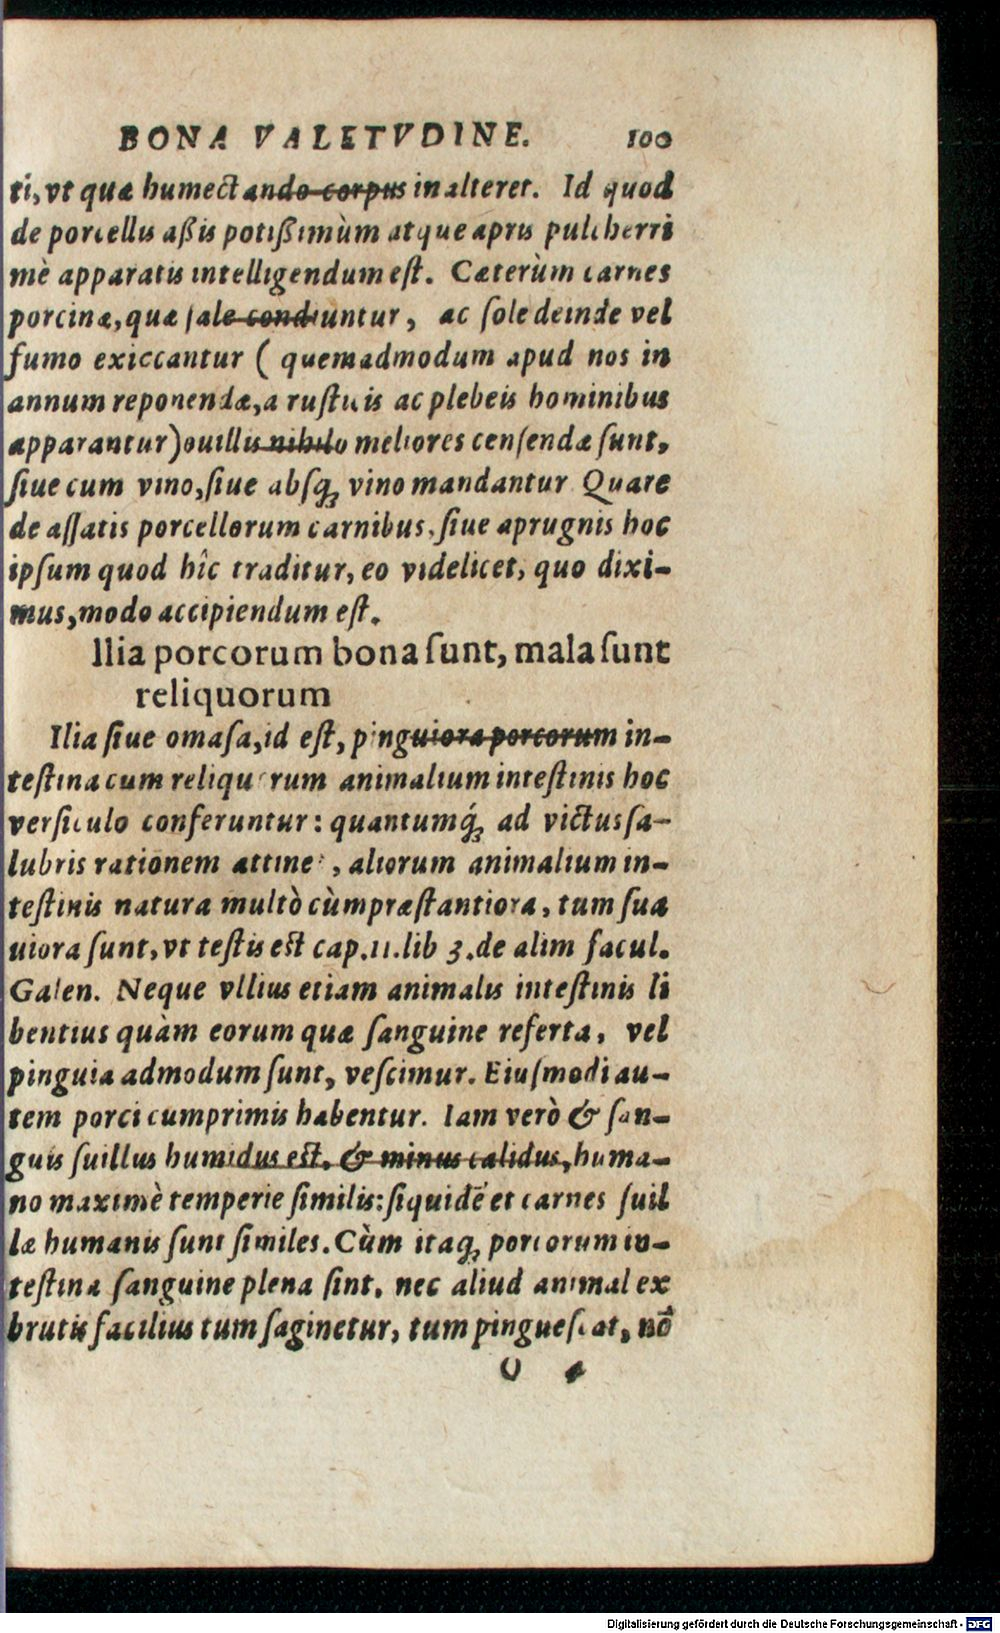 BONA VALETVDINE. 100
ti, vt quæ humectando corpus inalteret. Id quod
de porcellis aßis potißimùm atque apris pulcherri
mè apparatis intelligendum est. Cæterùm carnes
porcinæ, quæ sale condiuntur, ac sole deinde vel
fumo exiccantur ( quemadmodum apud nos in
annum reponendæ, a rusticis ac plebeis hominibus
apparantur) ouillis nihilo meliores censendæ sunt,
siue cum vino, siue absq; vino mandantur Quare
de assatis porcellorum carnibus, siue aprugnis hoc
ipsum quod hîc traditur, eo videlicet, quo dixi-
mus, modo accipiendum est.
Ilia porcorum bona sunt, mala sunt
reliquorum
Ilia siue omasa, id est, pinguiora porcorum in-
testina cum reliquorum animalium intestinis hoc
versiculo conferuntur: quantumq́; ad victus sa-
lubris rationem attinet, aliorum animalium in-
testinis natura multò cùm præstantiora, tum sua
uiora sunt, vt testis est cap. 11. lib 3. de alim facul.
Galen. Neque vllius etiam animalis intestinis li
bentius quàm eorum quæ sanguine referta, vel
pinguia admodum sunt, vescimur. Eiusmodi au-
tem porci cumprimis habentur. Iam verò & san-
guis suillus humidus est, & minus calidus, huma-
no maximè temperie similis: siquidē et carnes suil
læ humanis sunt similes. Cùm itaq; porcorum in-
testina sanguine plena sint, nec aliud animal ex
brutis facilius tum saginetur, tum pinguescat, nō
O 4
Digitalisierung gefördert durch die Deutsche Forschungsgemeinschaft - DFG